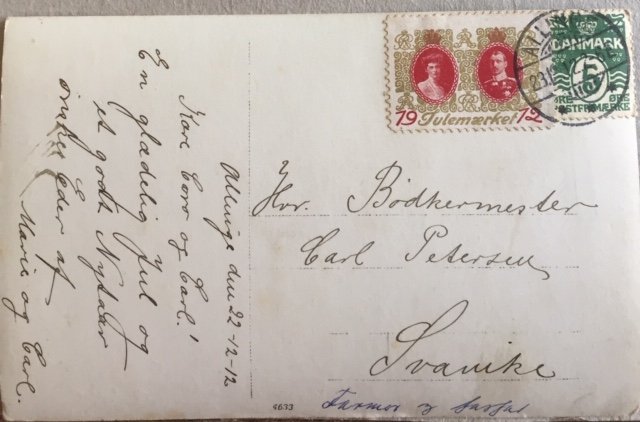 Allinge den 22-12-12
Kære Coro og Carl!
En glædelig Jul og
et godt Nytaar
ønskes Eder af
Marie og Carl.
19 Julemærket 12
DANMARK
5
ØRE ØRE
POSTFRIMÆRKE
Hr. Bødkermester
Carl Petersen
Svanike
Farmor og
6633